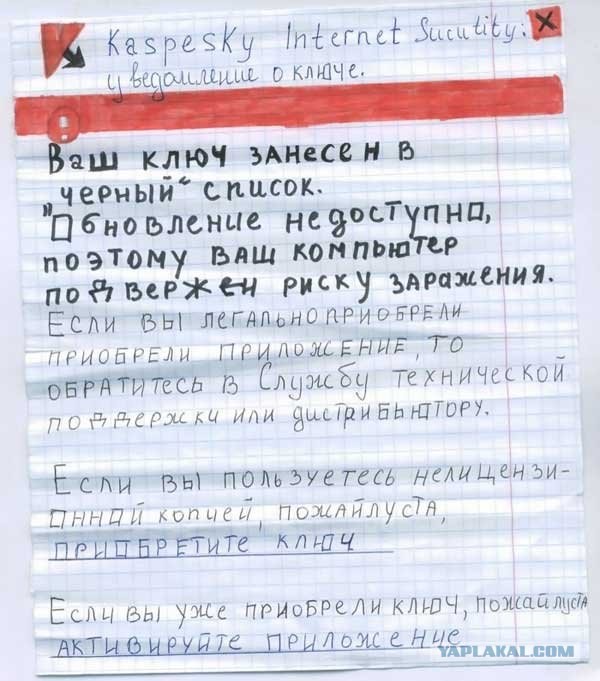 Kaspesky Internet Sucutity:
уведомление о ключе.
Ваш ключ занесен в
„черный“ список.
"Обновление недоступно,
поэтому ваш компьютер
подвержен риску заражения.
Если вы легально приобрели
приобрели приложение, то
обратитесь в Службу технической
поддержки или дистрибьютору.
Если вы пользуетесь нелицензи-
онной копией, пожайлуста,
приобретите ключ
Если вы уже приобрели ключ, пожайлуста
активируйте приложение
YAPLAKAL.COM